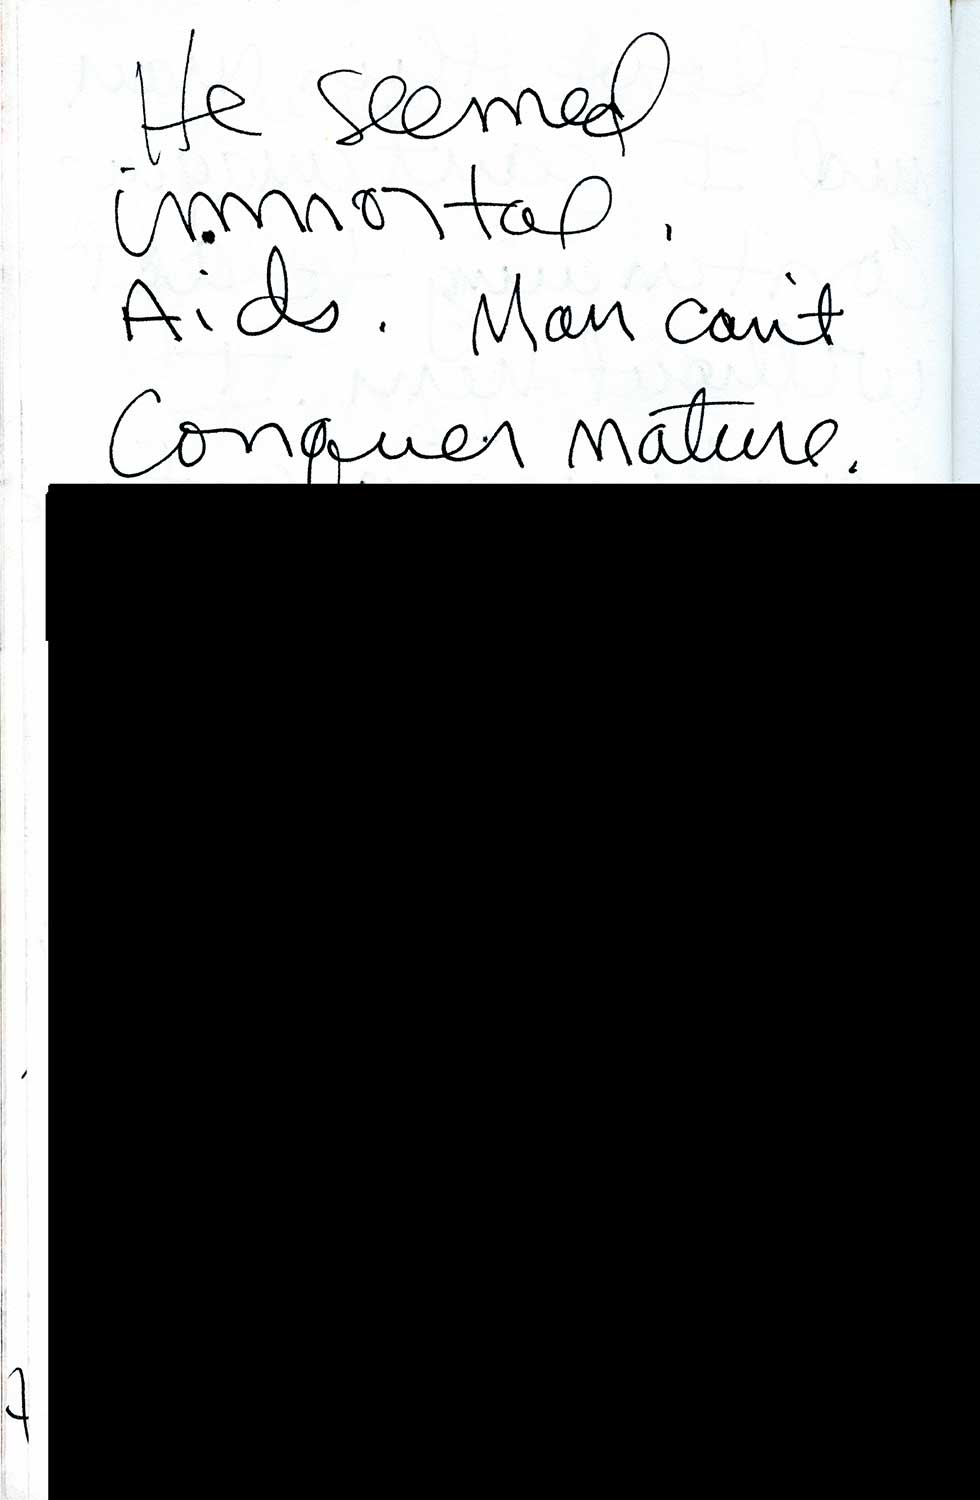 He seemed
immortal.
Aids. Man can't
Conquer nature.